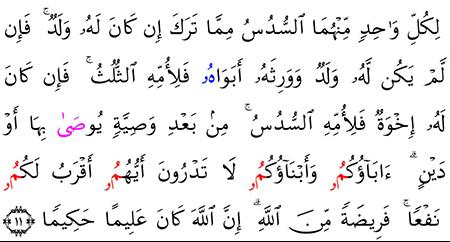 لِكُلِّ وَٰحِدٍ مِّنْهُمَا ٱلسُّدُسُ مِمَّا تَرَكَ إِن كَانَ لَهُۥ وَلَدٌ ۚ فَإِن
لَّمْ يَكُن لَّهُۥ وَلَدٌ وَوَرِثَهُۥٓ أَبَوَاهُۥ فَلِأُمِّهِ ٱلثُّلُثُ ۚ فَإِن كَانَ
لَهُۥٓ إِخْوَةٌ فَلِأُمِّهِ ٱلسُّدُسُ ۚ مِنۢ بَعْدِ وَصِيَّةٍ يُوصَىٰ بِهَا أَوْ
دَيْنٍ ۗ ءَابَآؤُكُمُۥ وَأَبْنَآؤُكُمُۥ لَا تَدْرُونَ أَيُّهُمُۥ أَقْرَبُ لَكُمُۥ
نَفْعًا ۚ فَرِيضَةً مِّنَ ٱللَّهِ ۗ إِنَّ ٱللَّهَ كَانَ عَلِيمًا حَكِيمًا ﴿١١﴾